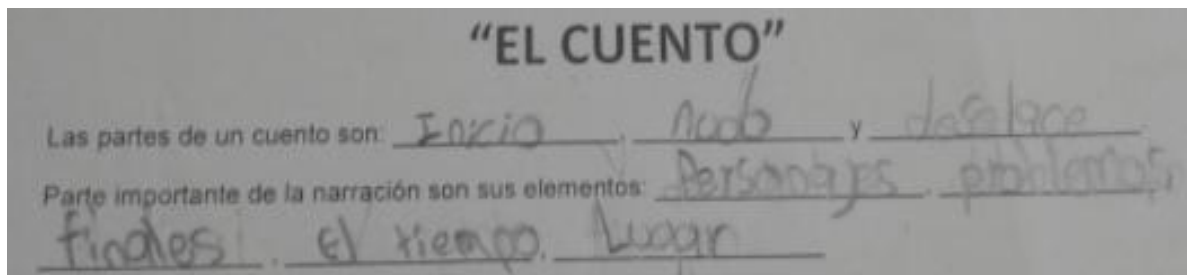 "EL CUENTO"
Las partes de un cuento son: Inicio, nudo y deselace.
Parte importante de la narración son sus elementos: Personajes, problemas,
finales, el tiempo, Lugar